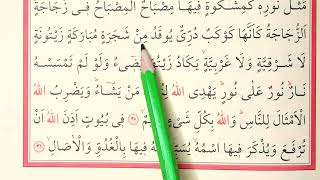 مَثَلُ نُورِهِ كَمِشْكٰوةٍ فِيهَا مِصْبَاحٌ اَلْمِصْبَاحُ فِى زُجَاجَةٍ
اَلزُّجَاجَةُ كَاَنَّهَا كَوْكَبٌ دُرِّىٌّ يُوقَدُ مِنْ شَجَرَةٍ مُبَارَكَةٍ زَيْتُونَةٍ
لَا شَرْقِيَّةٍ وَلَا غَرْبِيَّةٍ يَكَادُ زَيْتُهَا يُضِىءُ وَلَوْ لَمْ تَمْسَسْهُ
نَارٌ نُورٌ عَلٰى نُورٍ يَهْدِى اللّٰهُ مَنْ يَشَاءُ وَيَضْرِبُ اللّٰهُ
الْاَمْثَالَ لِلنَّاسِ وَاللّٰهُ بِكُلِّ شَىْءٍ ٣٥ فِى بُيُوتٍ اَذِنَ اللّٰهُ اَنْ
تُرْفَعَ وَيُذْكَرَ فِيهَا اسْمُهُ فِيهَا بِالْغُدُوِّ وَالْاٰصَالِ ٣٦